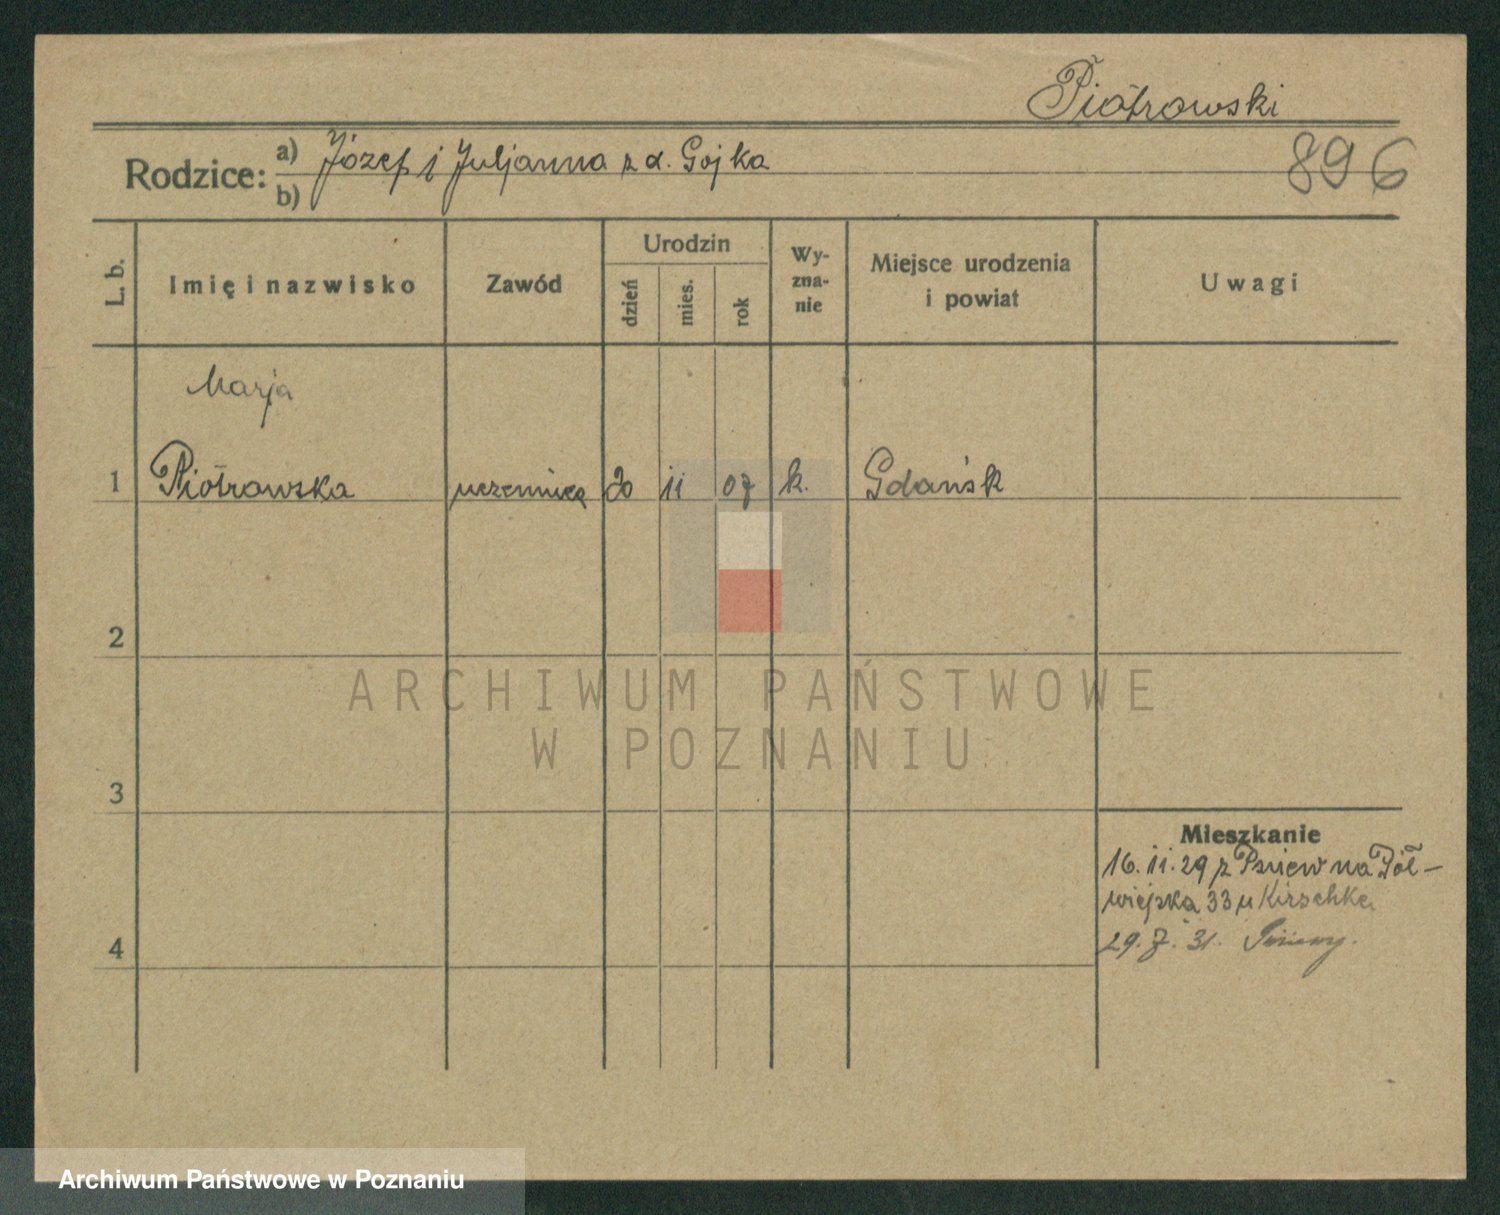 Piotrowski
896
Rodzice: a) Józef i Juljanna z d. Gojka
b)
L. b. Imię i nazwisko Zawód Urodzin dzień mies. rok Wyznanie Miejsce urodzenia i powiat Uwagi
Marja
1 Piotrowska uczennica 20 11 07 k. Gdańsk
2
ARCHIWUM PAŃSTWOWE
W POZNANIU
3
Mieszkanie
16. 11. 29 z Pniew na Pół-
wiejska 33 u Kirschke
4
29. 7. 31. Pniewy.
Archiwum Państwowe w Poznaniu